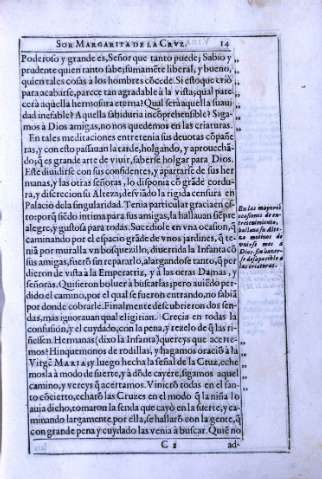 SOR MARGARITA DE LA CRVZ. 14
Poderoso y grande es, Señor que tanto puede; Sabio y
prudente quien tanto sabe; sumamẽte liberal, y bueno,
quien tales cosas à los hombres cõcede. Si esto que criò
para acabarse, parece tan agradable à la vista; qual pare-
cerà aquella hermosura eterna? Qual serà aquella suaui-
dad inefable? A quella sabiduria incõprehensible? Siga-
mos à Dios amigas, no nos quedemos en las criaturas.
En tales meditaciones entretenia sus deuotas cõpañe-
ras, y con esto passauan la tarde, holgando, y aprouechã-
dos, q̃ es grande arte de viuir, saberse holgar para Dios.
Este diuidirse con sus confidentes, y apartarse de sus her
manas, y las otras señoras, lo disponia cõ grãde cordu-
ra, y discrecion su Alteza; desviado la rigida censura en
Palacio de la singularidad. Tenia particular gracia en es-
to: porq̃ siẽdo intima para sus amigas, la hallauan sẽpre
alegre, y gustosa para todas. Sucediole en vna ocasion, q̃
caminando por el espacio grãde de vnos jardines, q̃ te-
nia por muralla vn bosquezillo, diuertida la Infanta cõ
sus amigas, fuerõ sin repararlo, alargandose tanto, q̃ per
dieron de vista à la Emperatriz, y à las otras Damas, y
señoras. Quisieron boluer à buscarlas; pero auiẽdo per-
dido el camino, por el qual se fueron entrando, no fabia
por donde cobrarle. Finalmente descubrieron dos sen-
das, mas ignorauan qual eligirian. Crecia en todas la
confusion, y el cuydado, con la pena, y rezelo de q̃ las ri-
ñessen. Hermanas (dixo la Infanta) quereys que acerte-
mos? Hinquemonos de rodillas, y hagamos oraciõ à la
Virgẽ MARIA; y luego hecha la señal de la Cruz, eche
mosla à modo de suerte, y à dõde cayere, sigamos aquel
camino, y vereys q̃ acertamos. Vinierõ todas en el san-
to cõcierto, echarõ las Cruzes en el modo q̃ la niña lo
auia dicho, tomaron la senda que cayò en la suerte, y ca-
minando largamente por ella, se hallarõ con la gente, q̃
con grande pena y cuydado las venia à buscar. Quiẽ no
C 2 ad-
En las mayores
ocasiones de en-
tretenimiento,
hallaua su Alte-
za motiuos de
vnirse mas à
Dios, sin hazer-
se desapacible à
las criaturas.